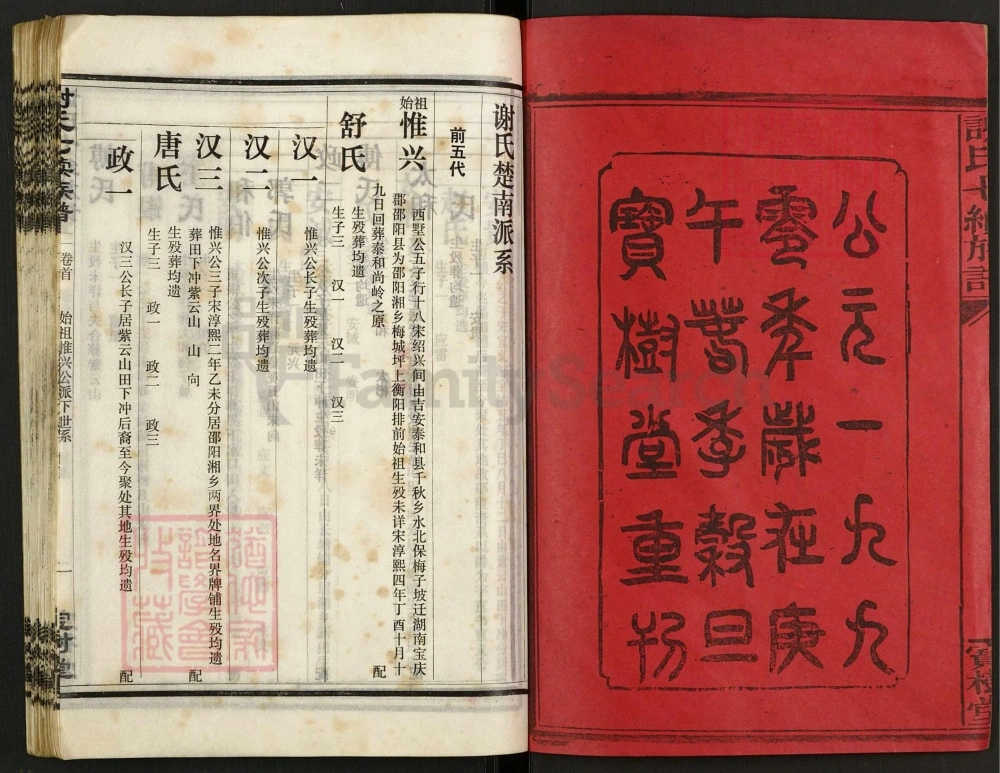 公元一九九
零年岁在庚
午暮季穀旦
寶樹堂重刊
寶樹堂
谢氏楚南派系
前五代
始祖
惟兴
西墅公五子行十八宋绍兴间由吉安泰和县千秋乡水北保梅子坡迁湖南宝庆
郡邵阳县为邵阳湘乡梅城坪上衡阳排前始祖生殁未详宋淳熙四年丁酉十月十
九日回葬泰和尚岭之原 配
舒氏
生殁葬均遗
生子三 汉一 汉二 汉三
汉一
惟兴公长子生殁葬均遗
汉二
惟兴公次子生殁葬均遗
汉三
惟兴公三子宋淳熙二年乙未分居邵阳湘乡两界处地名界牌铺生殁均遗
葬田下冲紫云山 山 向 配
唐氏
生殁葬均遗
生子三 政一 政二 政三
政一
汉三公长子居紫云山田下冲后裔至今聚处其地生殁均遗 配
卷首
始祖惟兴公派下世系
一
FamilySearch